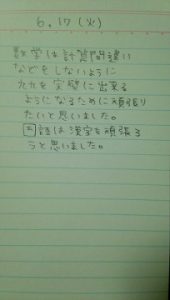 6.17(火)
数学は計算間違い
などをしないように
九九を完璧に出来る
ようになるために頑張り
たいと思いました。
国語は漢字を頑張ろ
うと思いました。